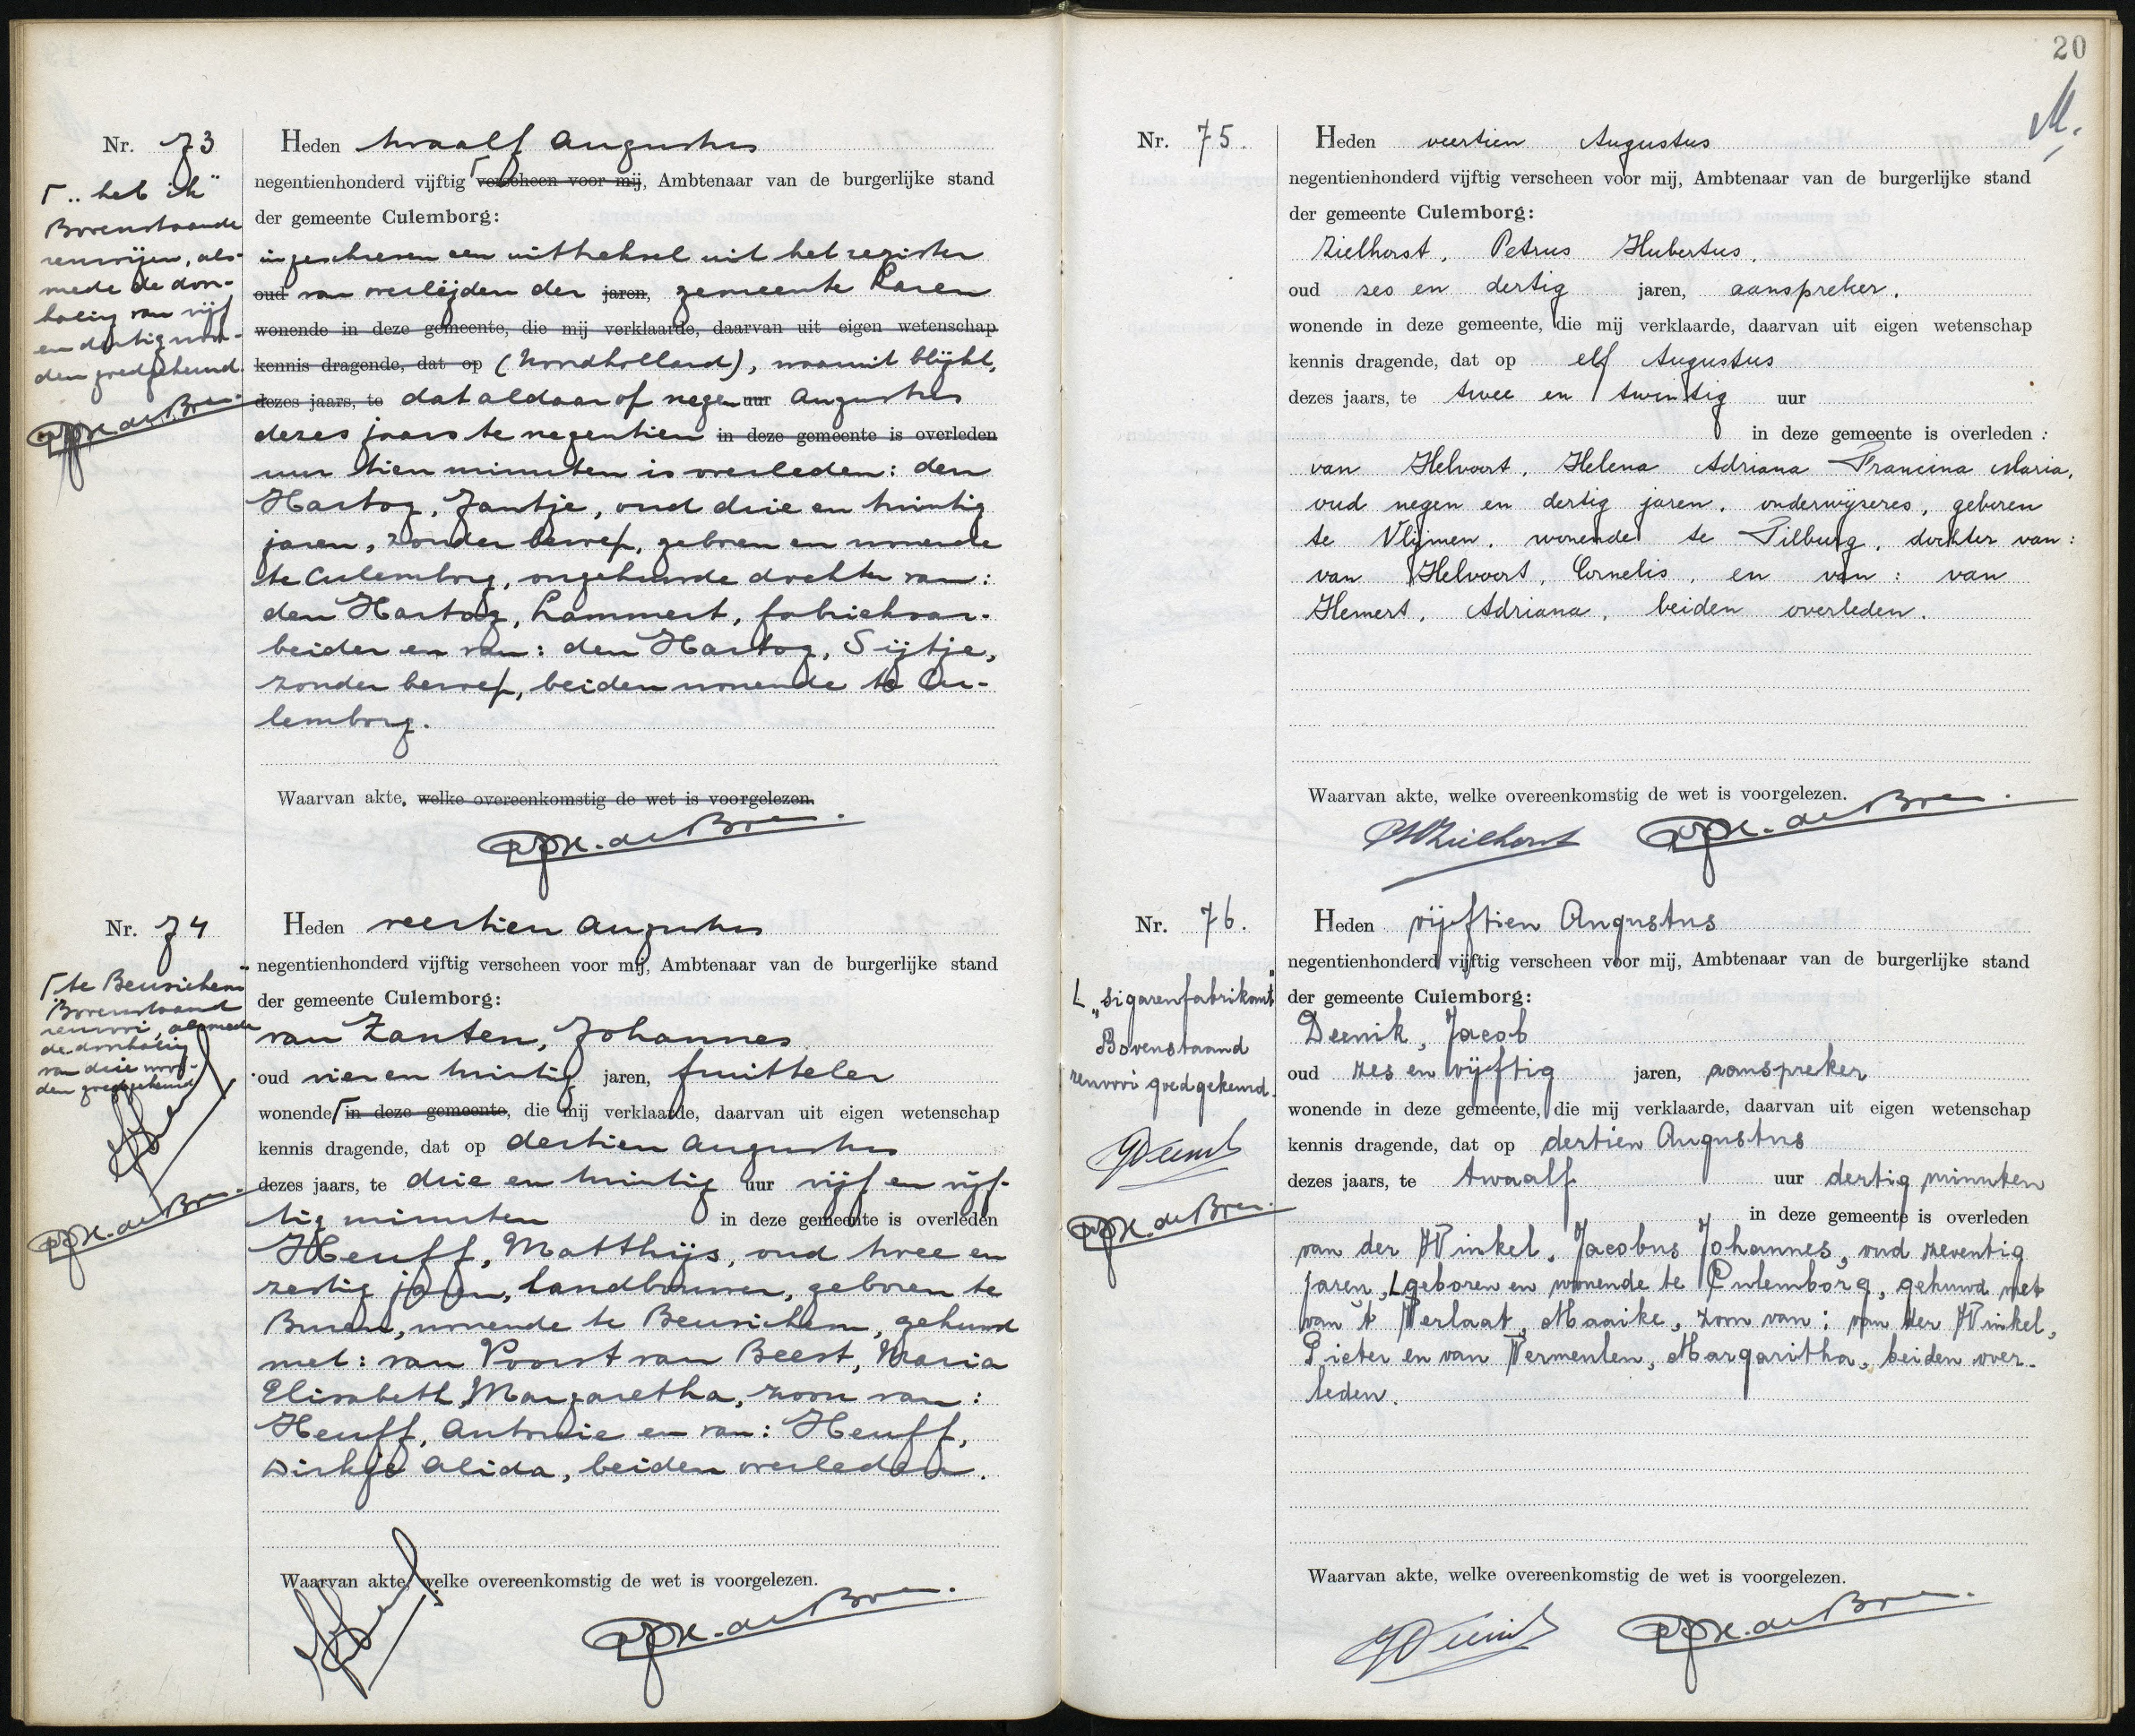 Nr. 73
Heden twaalf Augustus
negentienhonderd vijftig ⌈ verscheen voor mij, Ambtenaar van de burgerlijke stand
der gemeente Culemborg:
ingeschreven een uittreksel uit het register
oud van overlijden der jaren, gemeente Laren
wonende in deze gemeente, die mij verklaarde, daarvan uit eigen wetenschap
kennis dragende, dat op (Noordholland), waaruit blijkt,
dezes jaars, te dat aldaar op negen uur Augustus
dezes jaars te negentien in deze gemeente is overleden
uur tien minuten is overleden: den
Hartog, Jantje, oud drie en twintig
jaren, zonder beroep, geboren en wonende
te Culemborg, ongehuwde dochter van:
den Hartog, Lammert, fabrieksar-
beider en van: den Hartog, Sijtje,
zonder beroep, beiden wonende te Cu-
lemborg.
Waarvan akte, welke overeenkomstig de wet is voorgelezen.
⌈ „heb ik"
Bovenstaande
renvoijen, als-
mede de door-
haling van vijf
en dertig woor-
den goedgekeurd.
Nr. 74
Heden veertien Augustus
negentienhonderd vijftig verscheen voor mij, Ambtenaar van de burgerlijke stand
der gemeente Culemborg:
van Zanten, Johannes
oud vier en twintig jaren, fruitteler
wonende ⌈ in deze gemeente, die mij verklaarde, daarvan uit eigen wetenschap
kennis dragende, dat op dertien Augustus
dezes jaars, te drie en twintig uur vijf en vijf-
tig minuten in deze gemeente is overleden
Heuff, Matthijs, oud twee en
zestig jaren, landbouwer, geboren te
Buren, wonende te Beusichem, gehuwd
met: van Voorst van Beest, Maria
Elisabeth Margaretha, zoon van:
Heuff, Antonie en van: Heuff,
Dirkje Alida, beiden overleden.
Waarvan akte, welke overeenkomstig de wet is voorgelezen.
⌈ „te Beusichem"
Bovenstaand
renvooi, alsmede
de doorhaling
van drie woor-
den goedgekeurd
20
Nr. 75.
Heden veertien Augustus
negentienhonderd vijftig verscheen voor mij, Ambtenaar van de burgerlijke stand
der gemeente Culemborg:
Zielhorst, Petrus Hubertus,
oud zes en dertig jaren, aanspreker,
wonende in deze gemeente, die mij verklaarde, daarvan uit eigen wetenschap
kennis dragende, dat op elf Augustus
dezes jaars, te twee en twintig uur
in deze gemeente is overleden:
van Helvoort, Helena Adriana Francina Maria,
oud negen en dertig jaren, onderwijseres, geboren
te Vlijmen, wonende te Tilburg, dochter van:
van Helvoort, Cornelis, en van: van
Hemert, Adriana, beiden overleden.
Waarvan akte, welke overeenkomstig de wet is voorgelezen.
PHZielhorst
Nr. 76.
Heden vijftien Augustus
negentienhonderd vijftig verscheen voor mij, Ambtenaar van de burgerlijke stand
der gemeente Culemborg:
Deenik, Jacob
oud zes en vijftig jaren, aanspreker
wonende in deze gemeente, die mij verklaarde, daarvan uit eigen wetenschap
kennis dragende, dat op dertien Augustus
dezes jaars, te twaalf uur dertig minuten
in deze gemeente is overleden
van der Winkel, Jacobus Johannes, oud zeventig
jaren, L geboren en wonende te Culemborg, gehuwd met
van 't Verlaat, Maaike, zoon van: van der Winkel,
Pieter en van Vermeulen, Margaritha, beiden over-
leden.
Waarvan akte, welke overeenkomstig de wet is voorgelezen.
L „sigarenfabrikant"
Bovenstaand
renvooi goedgekeurd.
JDeenik